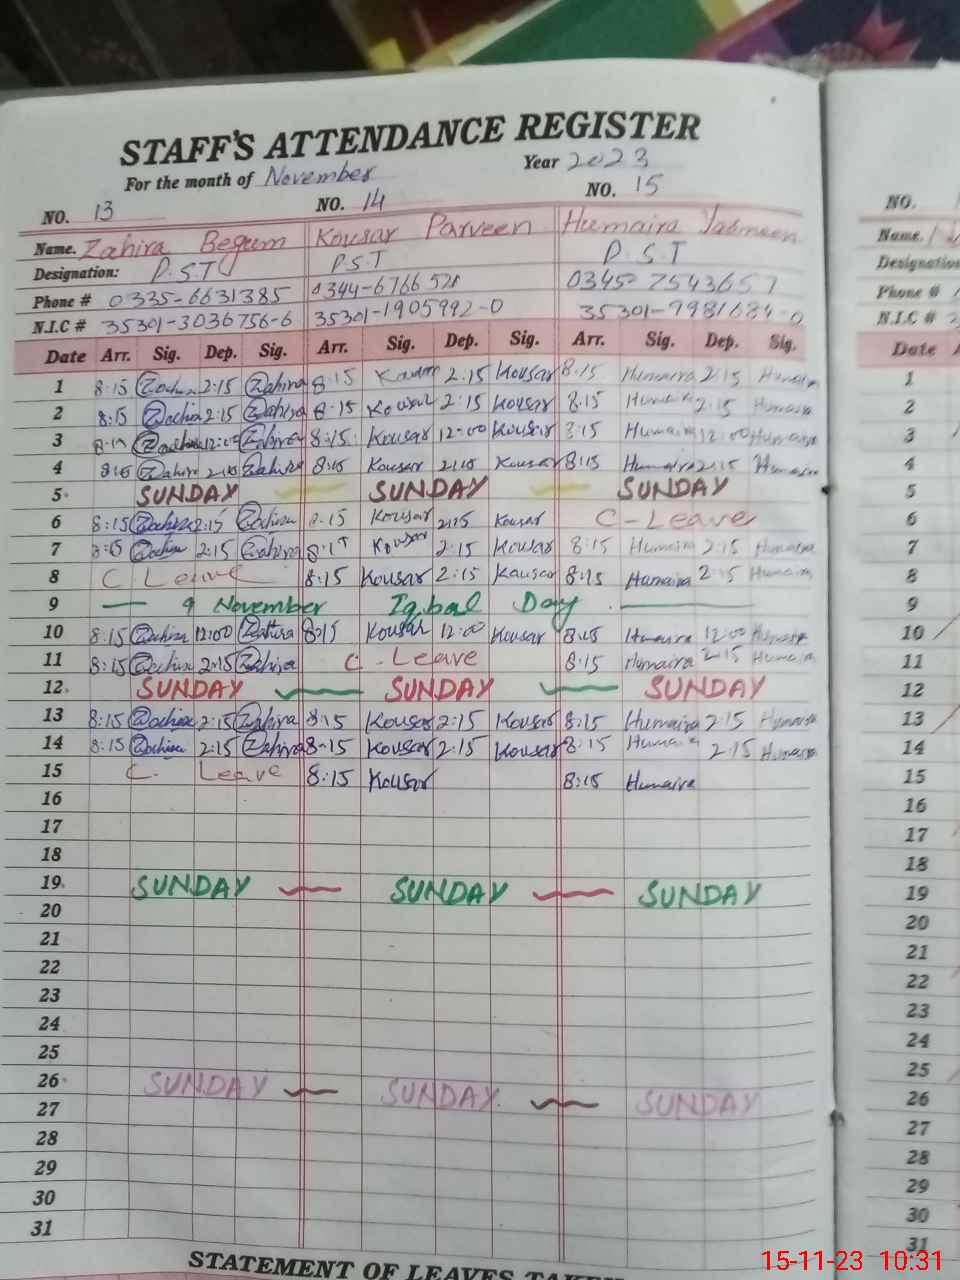 STAFF'S ATTENDANCE REGISTER
For the month of November Year 2023
NO. 13 NO. 14 NO. 15
Name. Zahira Begum Kousar Parveen Humaira Yasmeen
Designation: P.S.T P.S.T P.S.T
Phone # 0335-6631385 0344-6766521 0345-7543657
N.I.C # 35301-3036756-6 35301-1905992-0 35301-7981684-0
Date Arr. Sig. Dep. Sig. Arr. Sig. Dep. Sig. Arr. Sig. Dep. Sig.
1 8:15 2:15 Zahira 8:15 2:15 Kousar 8:15 Humaira 2:15 Humaira
2 8:15 Zahira 2:15 Zahira 8:15 Kousar 2:15 Kousar 8:15 Humaira 2:15 Humaira
3 Zahira 12:00 Zahira 8:15 Kousar 12:00 Kousar 8:15 Humaira 12:00 Humaira
4 8:15 Zahira 2:15 Zahira 8:15 Kousar 2:15 Kousar 8:15 Humaira 2:15 Humaira
5 SUNDAY SUNDAY SUNDAY
6 8:15 Zahira 2:15 Zahira 8:15 Kousar 2:15 Kousar C-Leave
7 8:15 Zahira 2:15 Zahira 8:15 Kousar 2:15 Kousar 8:15 Humaira 2:15 Humaira
8 C Leave 8:15 Kousar 2:15 Kousar 8:15 Humaira 2:15 Humaira
9 — 9 November Iqbal Day. —
10 8:15 Zahira 12:00 Zahira 8:15 Kousar 12:00 Kousar 8:15 Humaira 12:00 Humaira
11 8:15 Zahira 2:15 Zahira C-Leave 8:15 Humaira 2:15 Humaira
12 SUNDAY SUNDAY SUNDAY
13 8:15 Zahira 2:15 Zahira 8:15 Kousar 2:15 Kousar 8:15 Humaira 2:15 Humaira
14 8:15 Zahira 2:15 Zahira 8:15 Kousar 2:15 Kousar 8:15 Humaira 2:15 Humaira
15 C. Leave 8:15 Kousar 8:15 Humaira
16
17
18
19 SUNDAY SUNDAY SUNDAY
20
21
22
23
24
25
26 SUNDAY SUNDAY SUNDAY
27
28
29
30
31
STATEMENT OF LEAVES TAKEN
NO.
Name.
Designation
Phone #
N.I.C #
Date
1
2
3
4
5
6
7
8
9
10
11
12
13
14
15
16
17
18
19
20
21
22
23
24
25
26
27
28
29
30
31
15-11-23 10:31